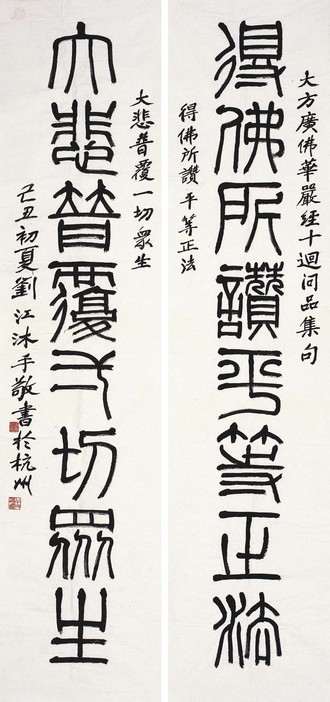 大方廣佛華嚴經十迴向品集句
得佛所讚平等正法
得佛所讚平等正法
大悲普覆一切眾生
大悲普覆一切眾生
己丑初夏劉江沐手敬書於杭州